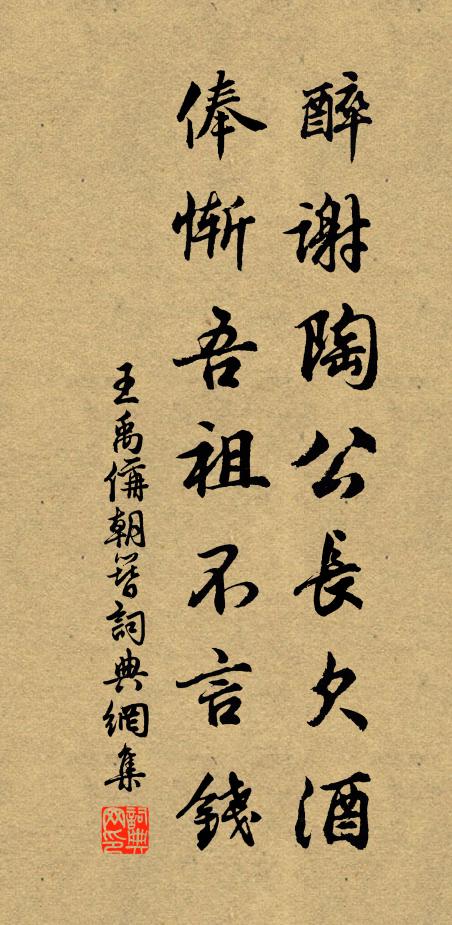 醉謝陶公長欠酒
俸慚吾祖不言錢
王禹偁朝簪詞典網集
詞典网印